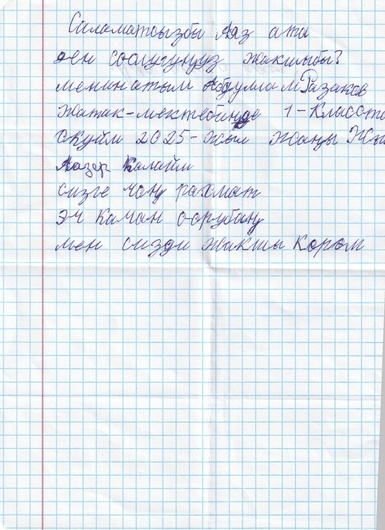 Саламатсызбы Аяз ата
ден соолугунуз жакшыбы?
менин атым Абдумалик Разаков
жатак-мектебинде 1-Класста
окуйм 2025-жыл жаңы Жыл
Лазер Калайм
сизге чоң рахмат
эч качан оорубаңу
мен сизди жакшы Кором